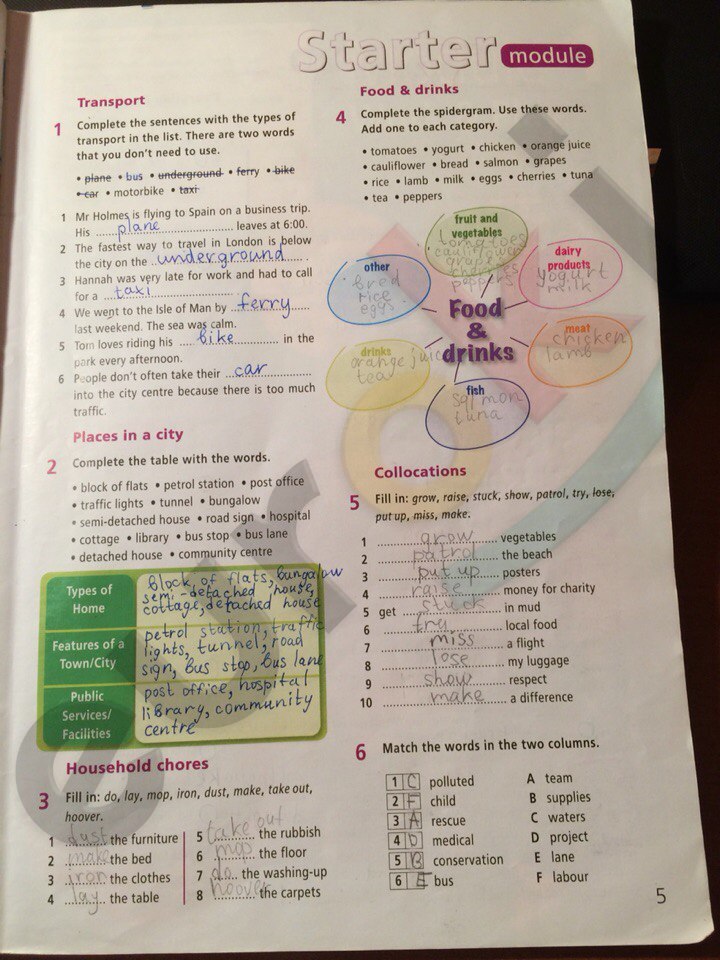 Starter module
Transport
1 Complete the sentences with the types of transport in the list. There are two words that you don't need to use.
• plane • bus • underground • ferry • bike
• car • motorbike • taxi
1 Mr Holmes is flying to Spain on a business trip.
His plane leaves at 6:00.
2 The fastest way to travel in London is below
the city on the underground.
3 Hannah was very late for work and had to call
for a taxi.
4 We went to the Isle of Man by ferry
last weekend. The sea was calm.
5 Tom loves riding his bike in the
park every afternoon.
6 People don't often take their car
into the city centre because there is too much
traffic.
Places in a city
2 Complete the table with the words.
• block of flats • petrol station • post office
• traffic lights • tunnel • bungalow
• semi-detached house • road sign • hospital
• cottage • library • bus stop • bus lane
• detached house • community centre
Types of Home
block of flats, bungalow
semi-detached house,
cottage, detached house
Features of a Town/City
petrol station, traffic
lights, tunnel, road
sign, bus stop, bus lane
Public Services/ Facilities
post office, hospital
library, community
centre
Household chores
3 Fill in: do, lay, mop, iron, dust, make, take out,
hoover.
1 dust the furniture
2 make the bed
3 iron the clothes
4 lay the table
5 take out the rubbish
6 mop the floor
7 do the washing-up
8 hoover the carpets
Food & drinks
4 Complete the spidergram. Use these words.
Add one to each category.
• tomatoes • yogurt • chicken • orange juice
• cauliflower • bread • salmon • grapes
• rice • lamb • milk • eggs • cherries • tuna
• tea • peppers
fruit and
vegetables
tomatoes
cauliflower
grape
cherries
peppers
other
bred
rice
eggs
dairy
products
yogurt
milk
Food
&
drinks
meat
chicken
lamb
drinks
orange juic
tea
fish
salmon
tuna
Collocations
5 Fill in: grow, raise, stuck, show, patrol, try, lose,
put up, miss, make.
1 grow vegetables
2 patrol the beach
3 put up posters
4 raise money for charity
5 get stuck in mud
6 try local food
7 miss a flight
8 lose my luggage
9 show respect
10 make a difference
6 Match the words in the two columns.
1 C polluted
2 F child
3 A rescue
4 D medical
5 B conservation
6 E bus
A team
B supplies
C waters
D project
E lane
F labour
5